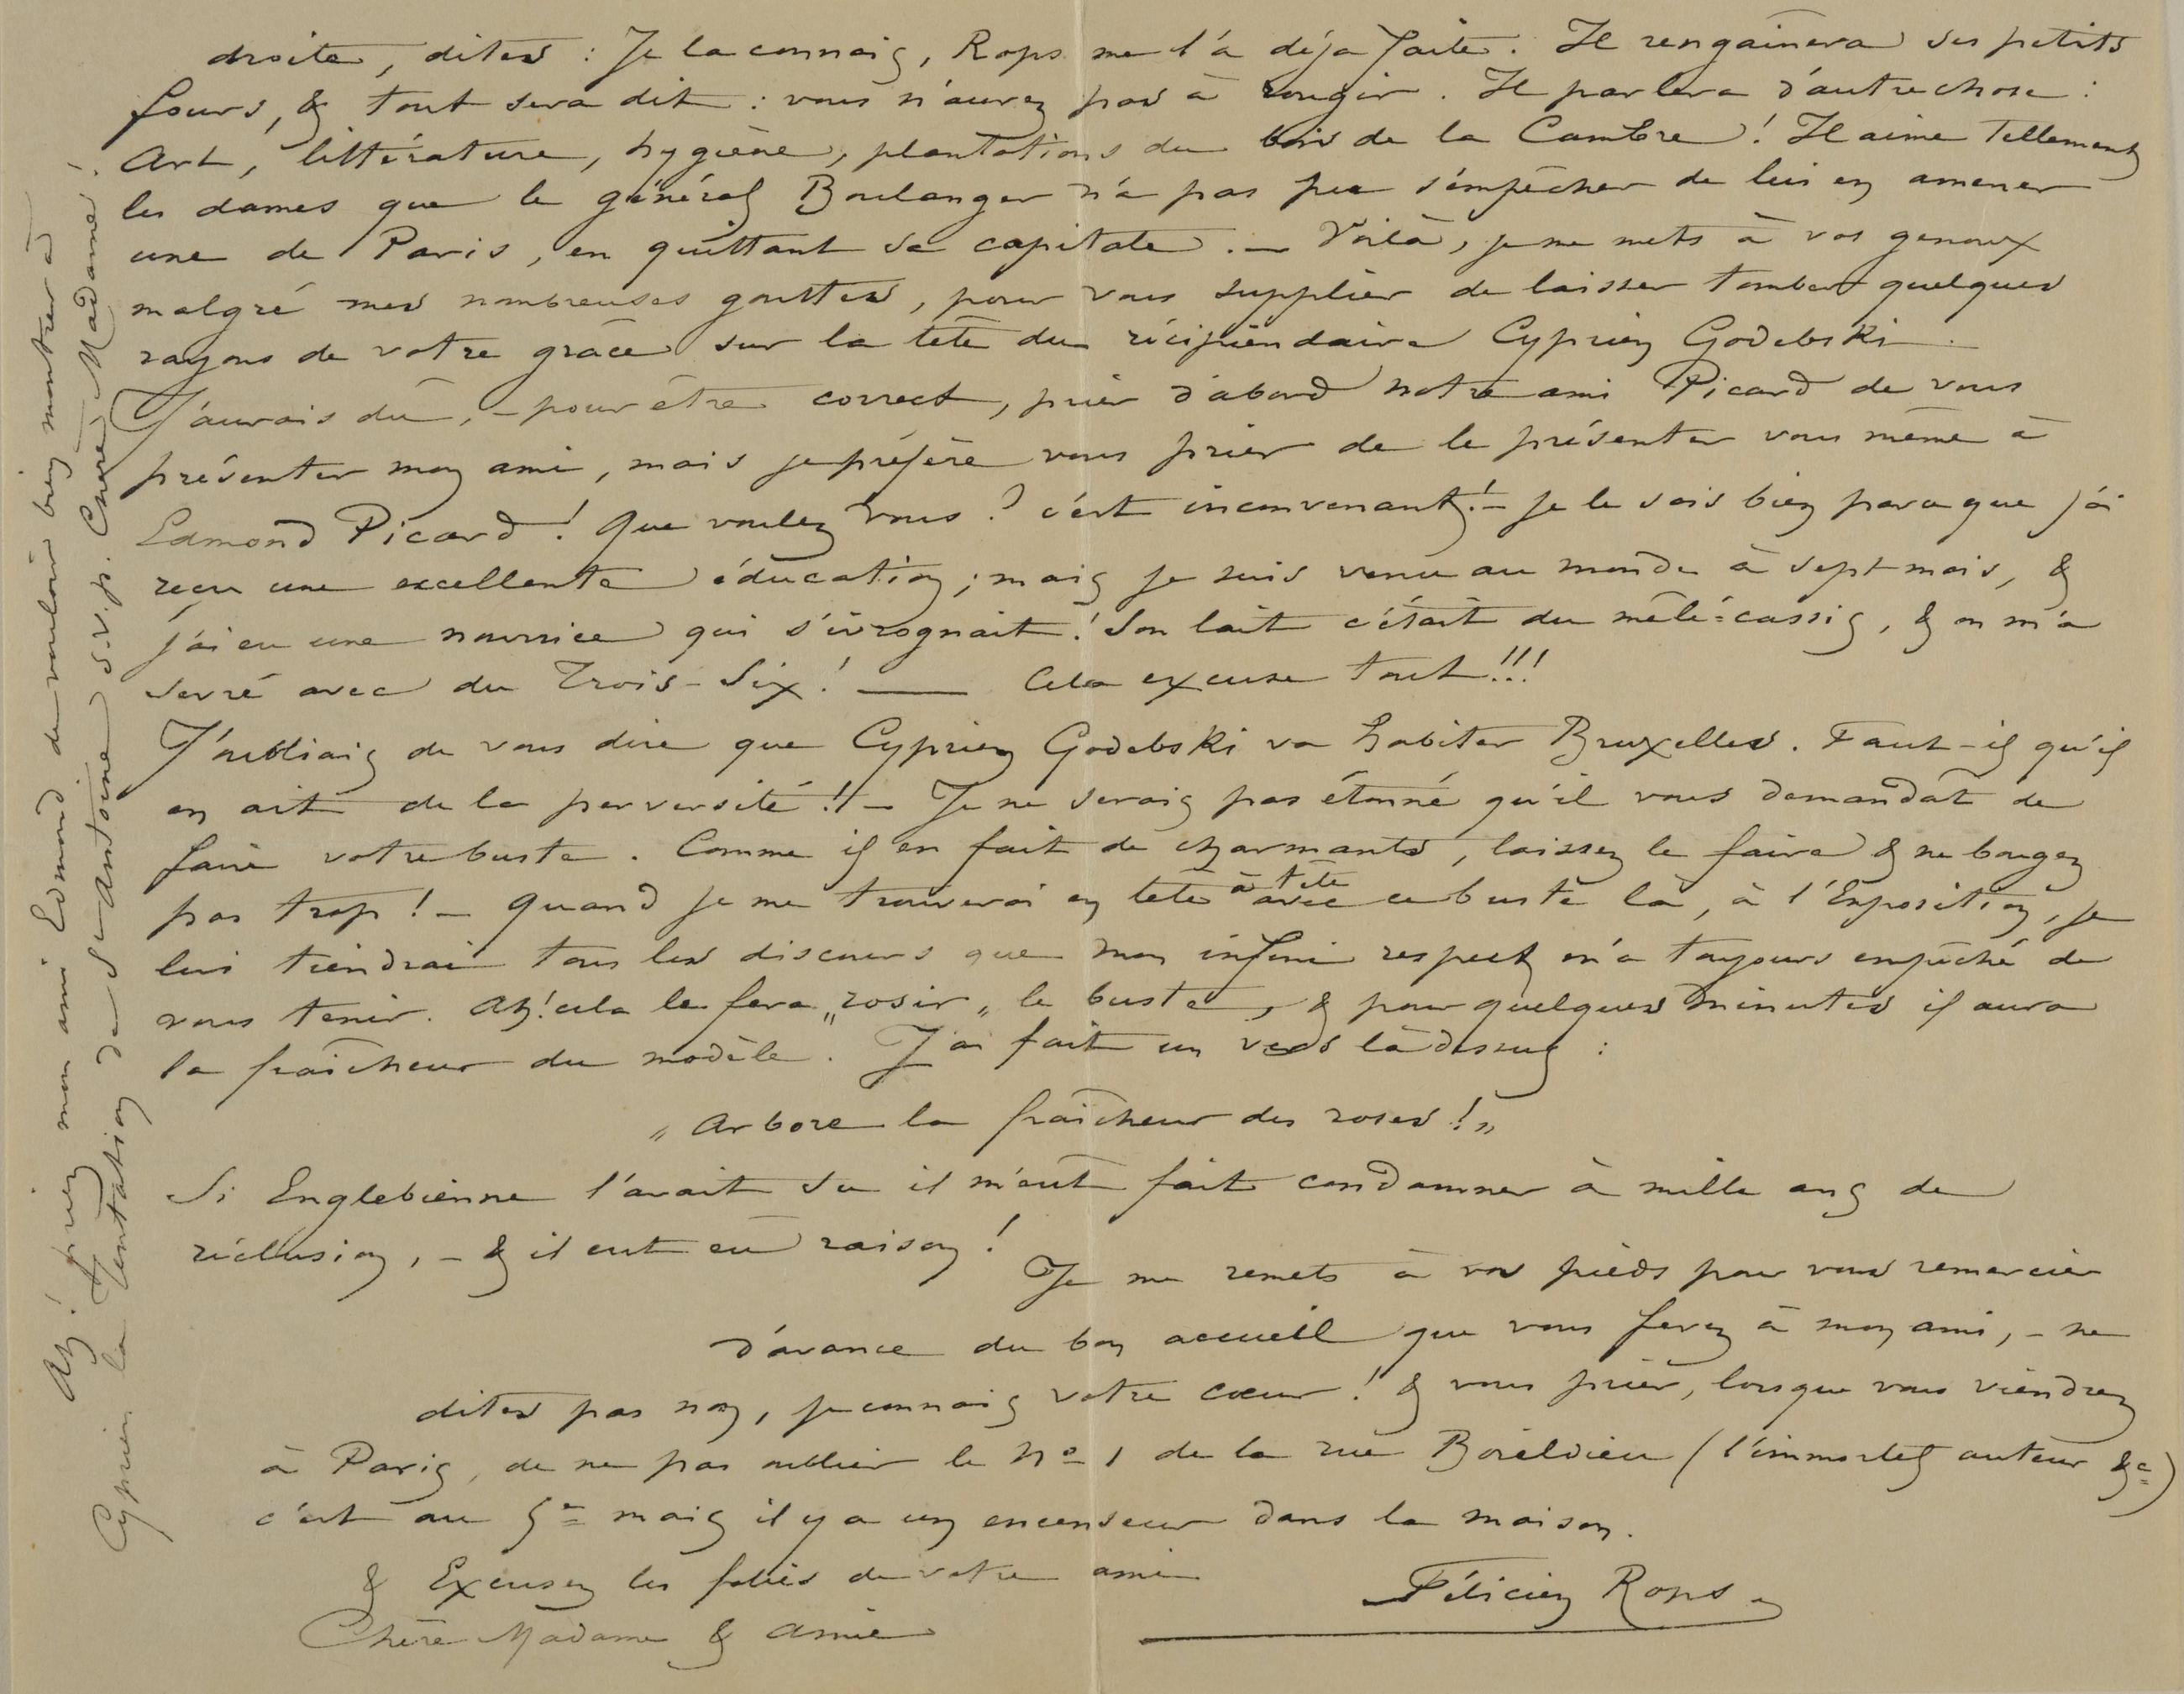 droite, dites : Je la connais, Rops me l'a déja faite. Il rengainera ses petits
fours, & tout sera dit : vous n'aurez pas à rougir. Il parlera d'autre chose :
Art, littérature, hygiène, plantations du bois de la Cambre ! Il aime tellement
les dames que le général Boulanger n'a pas pu s'empêcher de lui en amener
une de Paris, en quittant sa capitale. — Voilà, je me mets à vos genoux
malgré mes nombreuses gouttes, pour vous supplier de laisser tomber quelques
rayons de votre grâce sur la tête du récipiendaire Cyprien Godebski.
J'aurais dû, – pour être correct, prier d'abord notre ami Picard de vous
présenter mon ami, mais je préfère vous prier de le présenter vous même à
Edmond Picard ! Que voulez vous ? c'est inconvenant ! – Je le sais bien parce que j'ai
reçu une excellente éducation ; mais je suis venu au monde à sept mois, &
j'ai eu une nourrice qui s'ivrognait ! Son lait c'était du mêlé-cassis, & on m'a
sevré avec du Trois-Six ! — Cela excuse tout !!!
J'oubliais de vous dire que Cyprien Godebski va habiter Bruxelles. Faut-il qu'il
en ait de la perversité !! – Je ne serais pas étonné qu'il vous demandât de
faire votre buste. Comme il en fait de charmants, laissez le faire & ne bougez
pas trop ! – Quand je me trouverai en tête à tête avec ce buste là, à l'Exposition, je
lui tiendrai tous les discours que mon infini respect m'a toujours empêché de
vous tenir. Ah ! cela le fera „rosir„ le buste, & pour quelques minutes il aura
la fraîcheur du modèle. J'ai fait un vers làdessus :
„Arbore la fraîcheur des roses !„
Si Englebienne l'avait su il m'eut fait condamner à mille ans de
réclusion, – & il eut eu raison !
Je me remets à vos pieds pour vous remercier
d'avance du bon accueil que vous ferez à mon ami, – ne
dites pas non, je connais votre cœur ! & vous prier, lorsque vous viendrez
à Paris, de ne pas oublier le Nº 1 de la rue Boieldieu (l'immortel auteur &c)
c'est au 5e mais il y a un encenseur dans la maison.
& Excusez les folies de votre ami
Félicien Rops
Chère Madame & Amie
Ah ! priez mon ami Edmond de vouloir bien montrer à
Cyprien la Tentation de St Antoine s.v.p. Chère Madame !